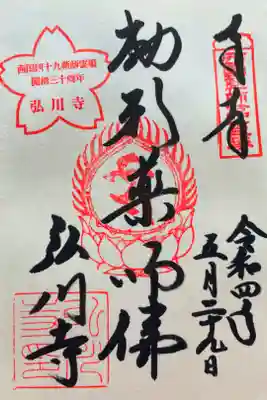 奉拝
令和四年
五月二十九日
劫形薬師佛
弘川寺
西国四十九薬師霊場
開創三十周年
弘川寺